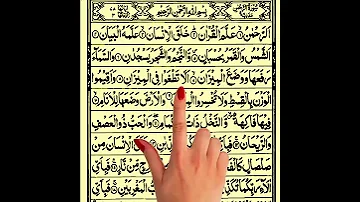 بِسْمِ اللّٰهِ الرَّحْمٰنِ الرَّحِيْمِ
اَلرَّحْمٰنُ عَلَّمَ الْقُرْاٰنَ خَلَقَ الْاِنْسَانَ عَلَّمَهُ الْبَيَانَ
اَلشَّمْسُ وَالْقَمَرُ بِحُسْبَانٍ وَّالنَّجْمُ وَالشَّجَرُ يَسْجُدٰنِ وَالسَّمَآءَ
رَفَعَهَا وَوَضَعَ الْمِيْزَانَ اَلَّا تَطْغَوْا فِى الْمِيْزَانِ وَاَقِيْمُوا
الْوَزْنَ بِالْقِسْطِ وَلَا تُخْسِرُوا الْمِيْزَانَ وَالْاَرْضَ وَضَعَهَا لِلْاَنَامِ
فِيْهَا فَاكِهَةٌ وَّالنَّخْلُ ذَاتُ الْاَكْمَامِ وَالْحَبُّ ذُو الْعَصْفِ
وَالرَّيْحَانُ فَبِاَيِّ الْاِنْسَانَ مِنْ
صَلْصَالٍ مِنْ نَّارٍ فَبِاَيِّ
اٰلَآءِ رَبِّكُمَا الْمَغْرِبَيْنِ فَبِاَيِّ